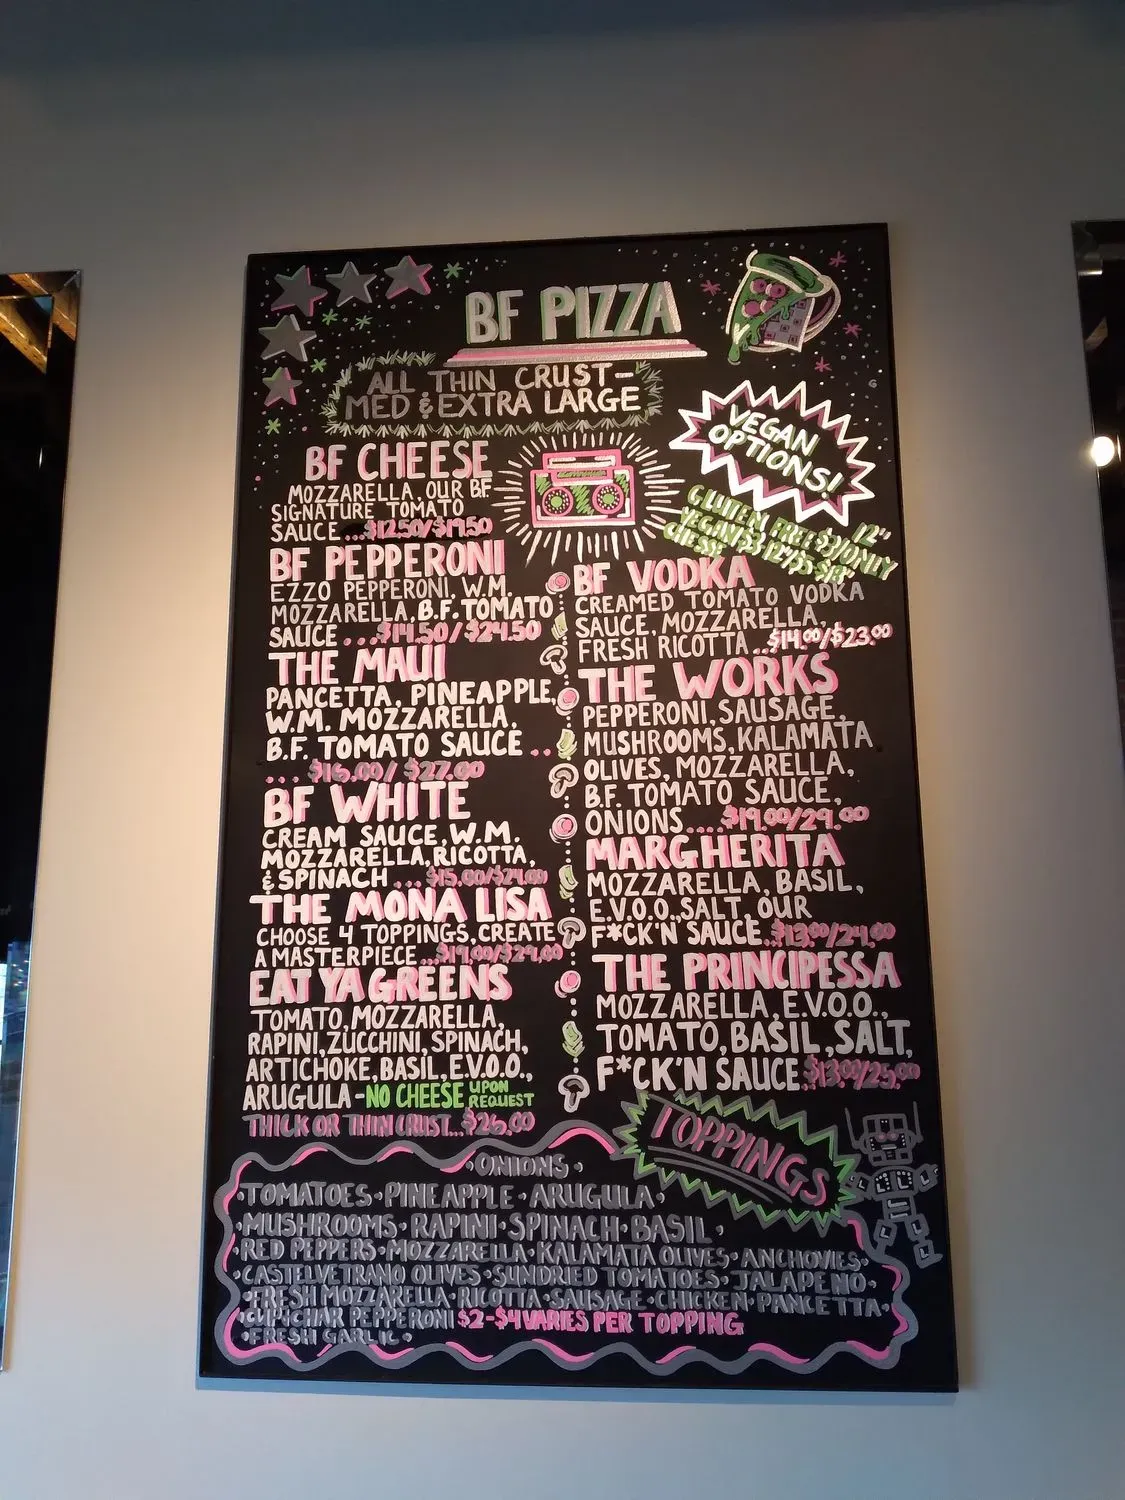 BF PIZZA
ALL THIN CRUST-
MED & EXTRA LARGE
VEGAN
OPTIONS!
GLUTEN FREE $3/ONLY 12"
VEGAN $3 12"/$5 18"
CHEESE
BF CHEESE
MOZZARELLA, OUR B.F.
SIGNATURE TOMATO
SAUCE...$12.50/$19.50
BF PEPPERONI
EZZO PEPPERONI, W.M.
MOZZARELLA, B.F. TOMATO
SAUCE...$14.50/$24.50
THE MAUI
PANCETTA, PINEAPPLE,
W.M. MOZZARELLA,
B.F. TOMATO SAUCE ..
... $16.00/$27.00
BF WHITE
CREAM SAUCE, W.M.
MOZZARELLA, RICOTTA,
& SPINACH ... $15.00/$24.00
THE MONA LISA
CHOOSE 4 TOPPINGS, CREATE
A MASTERPIECE ...$19.00/$29.00
EAT YA GREENS
TOMATO, MOZZARELLA,
RAPINI, ZUCCHINI, SPINACH,
ARTICHOKE, BASIL, E.V.O.O.,
ARUGULA-NO CHEESE UPON REQUEST
THICK OR THIN CRUST...$26.00
BF VODKA
CREAMED TOMATO VODKA
SAUCE, MOZZARELLA,
FRESH RICOTTA...$14.00/$23.00
THE WORKS
PEPPERONI, SAUSAGE,
MUSHROOMS, KALAMATA
OLIVES, MOZZARELLA,
B.F. TOMATO SAUCE,
ONIONS....$19.00/29.00
MARGHERITA
MOZZARELLA, BASIL,
E.V.O.O., SALT, OUR
F*CK'N SAUCE..$13.00/24.00
THE PRINCIPESSA
MOZZARELLA, E.V.O.O.,
TOMATO, BASIL, SALT,
F*CK'N SAUCE $13.00/25.00
TOPPINGS
•ONIONS•
•TOMATOES•PINEAPPLE•ARUGULA•
•MUSHROOMS•RAPINI•SPINACH•BASIL•
•RED PEPPERS•MOZZARELLA•KALAMATA OLIVES•ANCHOVIES•
•CASTELVETRANO OLIVES•SUNDRIED TOMATOES•JALAPENO•
•FRESH MOZZARELLA•RICOTTA•SAUSAGE•CHICKEN•PANCETTA•
•CUP N CHAR PEPPERONI $2-$4 VARIES PER TOPPING
•FRESH GARLIC•